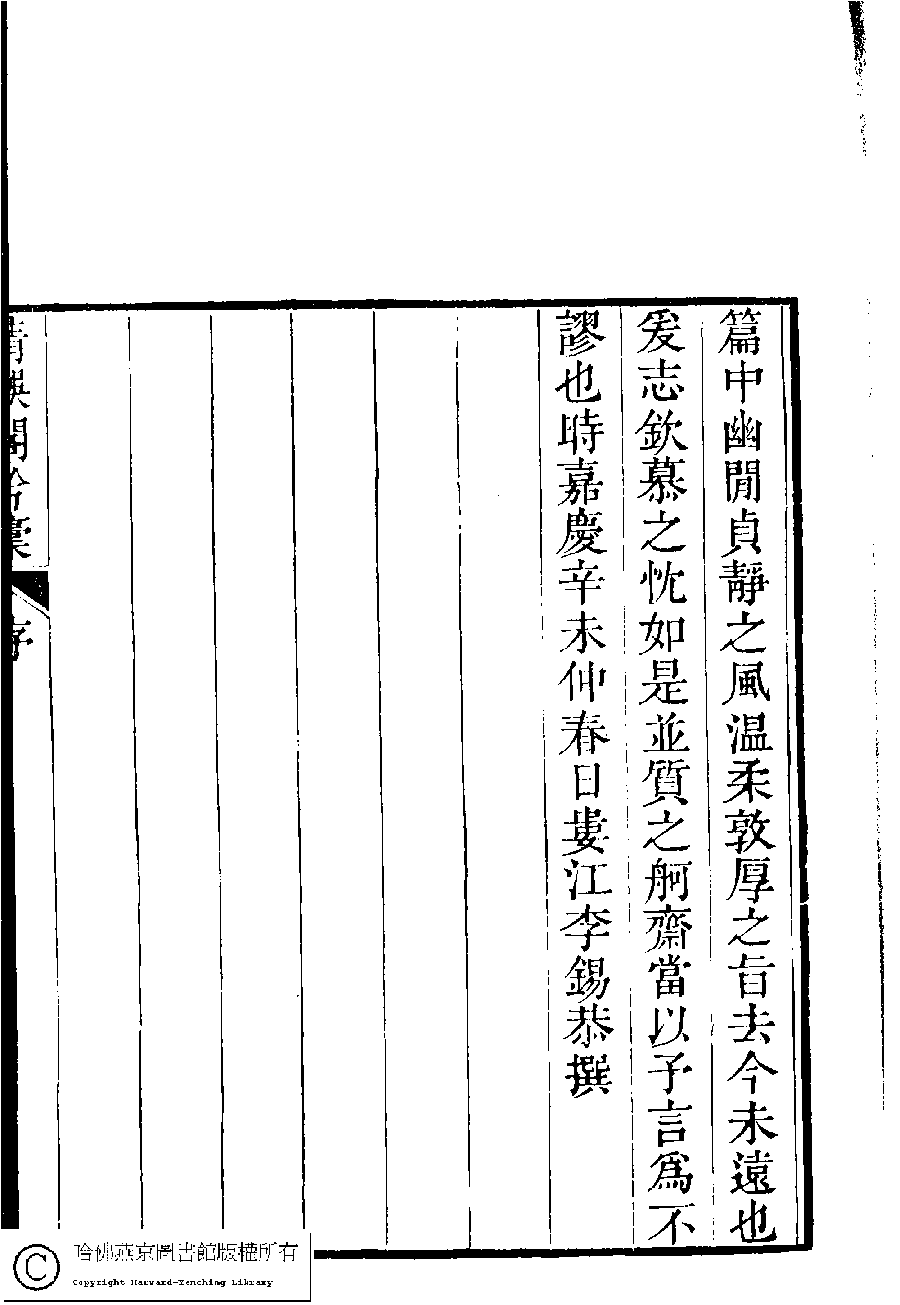 篇中幽閒貞靜之風温柔敦厚之旨去今未遠也
爰志欽慕之忱如是並質之舸齋當以予言爲不
謬也時嘉慶辛未仲春日婁江李錫恭撰
序
哈佛燕京圖書館版權所有
Copyright Harvard-Yenching Library